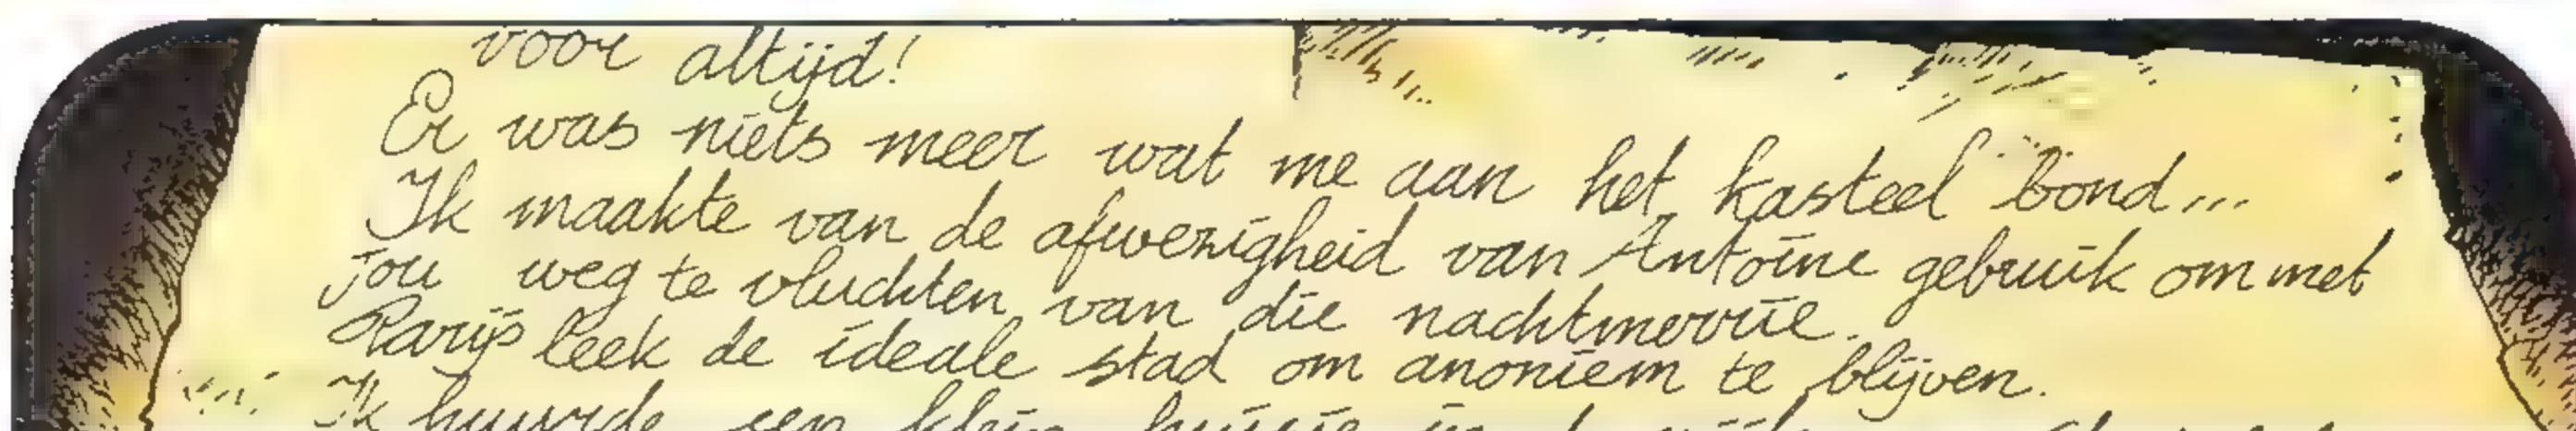 voor altijd!
Er was niets meer wat me aan het kasteel bond...
Ik maakte van de afwezigheid van Antoine gebruik om met
jou weg te vluchten van die nachtmerrie.
Parijs leek de ideale stad om anoniem te blijven.
Ik huurde een klein huisje in de